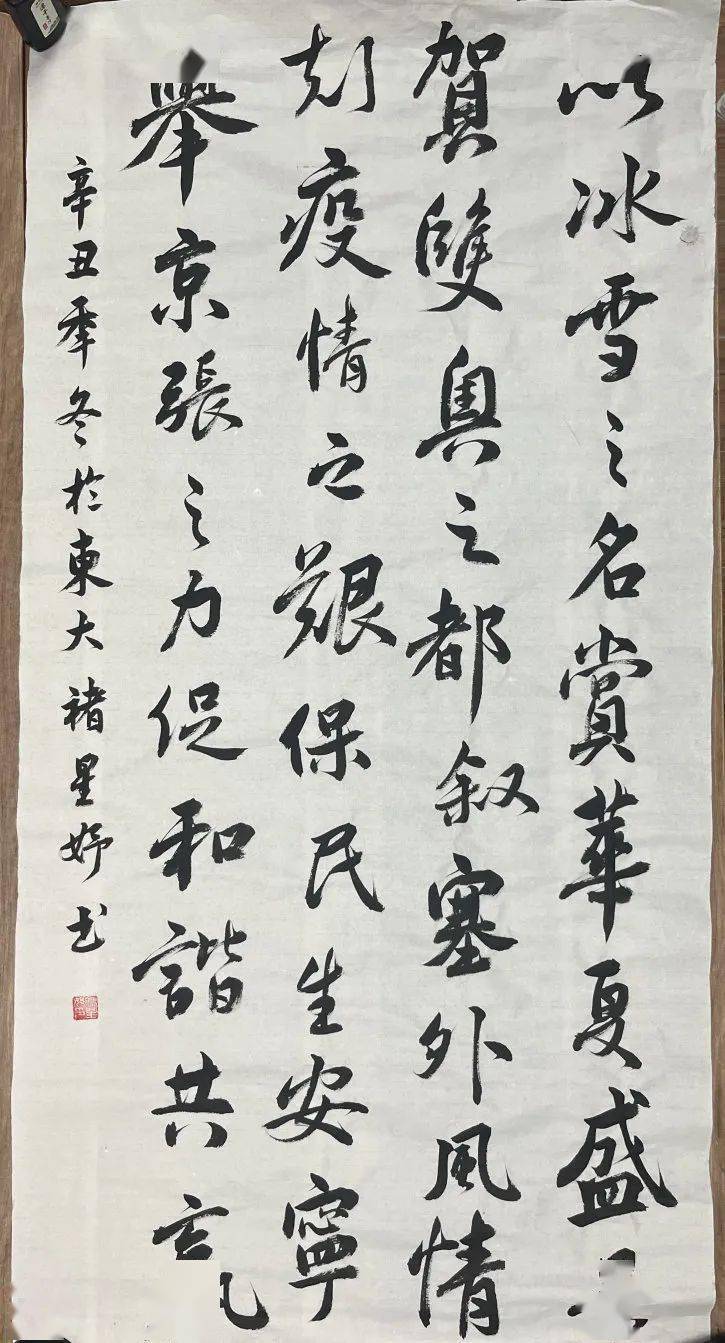 以冰雪之名賞華夏盛
賀雙奧之都叙塞外風情
剋疫情之艱保民生安寧
舉京張之力促和諧共
辛丑季冬於東大褚星妤书